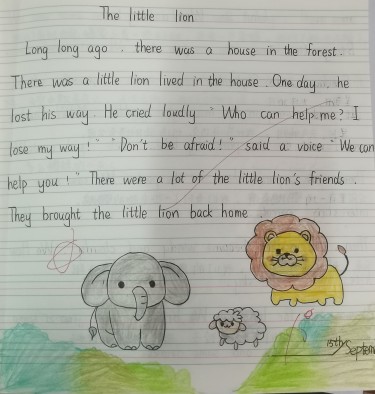 The little lion
Long long ago , there was a house in the forest .
There was a little lion lived in the house . One day , he
lost his way . He cried loudly " Who can help me ? I
lose my way ! " " Don't be afraid ! " said a voice " We can
help you ! " There were a lot of the little lion's friends .
They brought the little lion back home .
15th Septem